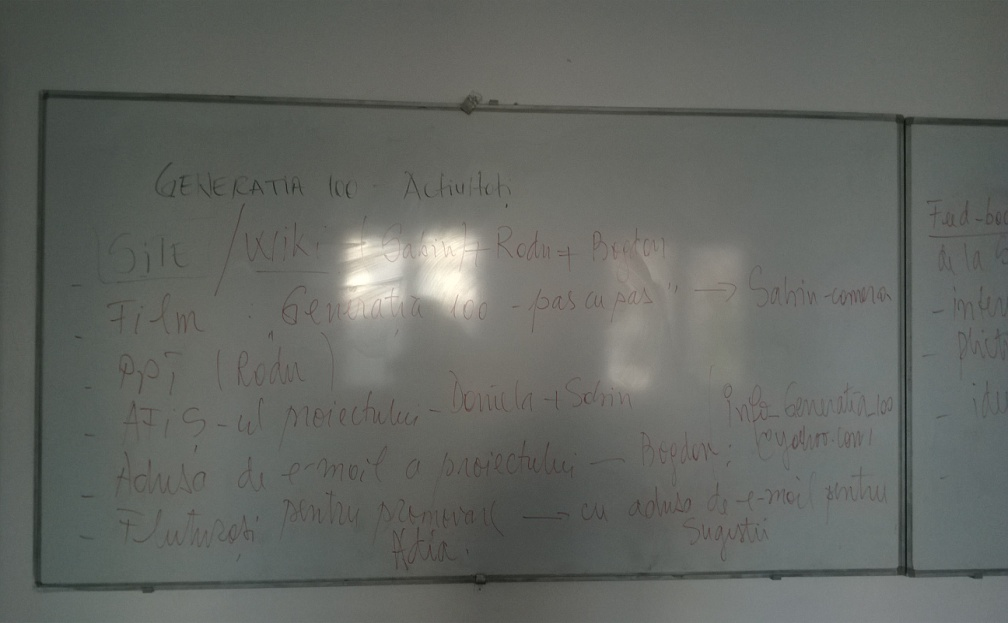 GENERATIA 100 - Activități
- Site / Wiki + Sabin + Radu + Bogdan
- Film : "Generatia 100 - pas cu pas" → Sabin - camera
- PPT (Radu)
- AFIȘ-ul proiectului - Daniela + Sabin
- Adresa de e-mail a proiectului - Bogdan: info_Generatia_100@yahoo.com
- Fluturași pentru promovare → cu adresa de e-mail pentru
Sugestii
Adia.
Feed-bac
de la
- inter
-
- ide
-